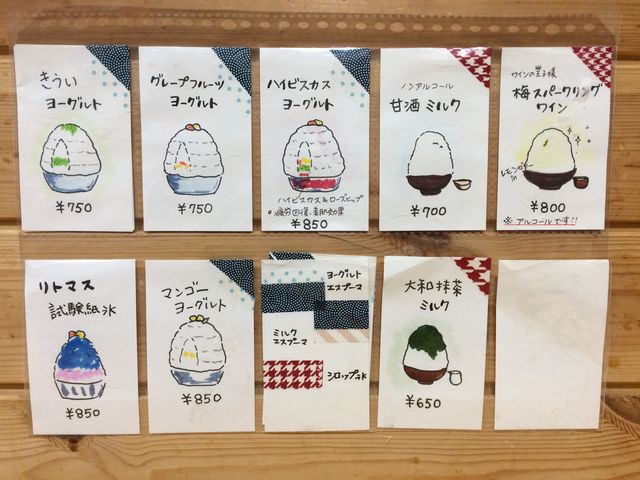 きうい
ヨーグルト
¥750
グレープフルーツ
ヨーグルト
¥750
ハイビスカス
ヨーグルト
ハイビスカス&ローズヒップ
疲労回復・美肌効果
¥850
ノンアルコール
甘酒ミルク
¥700
ワインの王子様
梅スパークリング
ワイン
レモンピール
in
¥800
※アルコールです!!
リトマス
試験紙氷
¥850
マンゴー
ヨーグルト
¥850
ヨーグルト
エスプーマ
ミルク
エスプーマ
シロップ氷
大和抹茶
ミルク
¥650